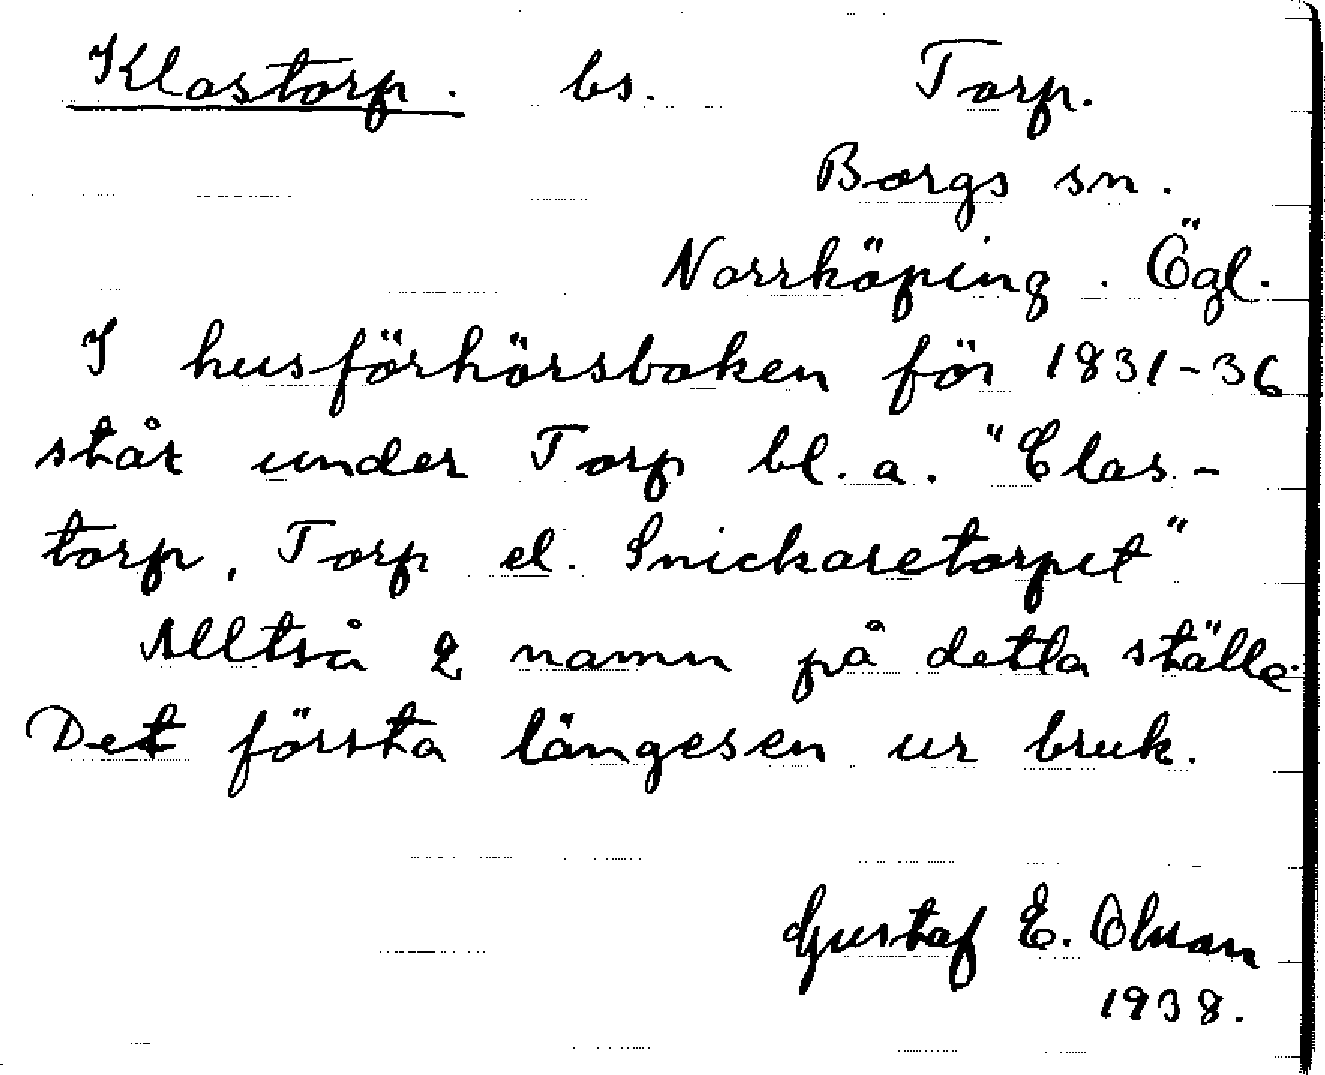 Klastorp. bs. Torp.
Borgs sn.
Norrköping. Ögl.
I husförhörsboken för 1831-36
står under Torp bl. a. "Clas-
torp, Torp el. Snickaretorpet"
Alltså 2 namn på detta ställe.
Det första längesen ur bruk.
Gustaf E. Olsson
1938.